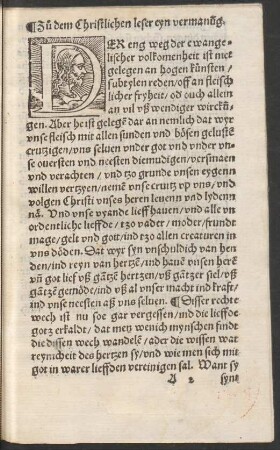 ¶Zů dem Christlichen leser eyn vermanũg.
DER eng weg der ewange-
lischer volkomenheit ist niet
gelegen an hogen kůnsten/
subtylen reden/off an fleisch
licher fryheit/ od ouch allein
an vil vß wendiger wirckũ-
gen. Aber he ist gelegẽ dar an nemlich dat wyr
vnse fleisch mit allen sunden vnd bôsen geluste
crutzigen/vns seluen vnder got vnd vnder vn-
se ouersten vnd neesten diemudigen/versmaen
vnd verachten / vnd tzo grunde vnsen eygenn
willen vertzyen/nemẽ vnse crutz vp vns/ vnd
volgen Christi vnses heren leuenn vnd lydenn
nã. Vnd vnse vyande lieff hauen/vnd alle vn
ordentliche lieffde / tzo vader / moder/frundt
mage/gelt vnd gott/ind tzo allen creaturen in
vns dôden. Dat wyr syn vnschuldich van hen
den/ind reyn van hertzẽ/ind hauẽ vnsen herẽ
vñ got lief vß gãtzẽ hertzen/vß gãtzer siel/vß
gãtzẽ gemôde/ind vß al vnser macht ind krafft/
ind vnse neesten als vns seluen. ¶ Disser rechte
wech ist nu soe gar vergessen/ind die lieffde
gotz erkaldt/ dat metz wenich mynschen findt
die dissen wech wandelẽ/ ader die wissen wat
reynicheit des hertzen sy/vnd wie men sich mit
got in warer lieffden vereinigen sal. Want sy
A 2 synt